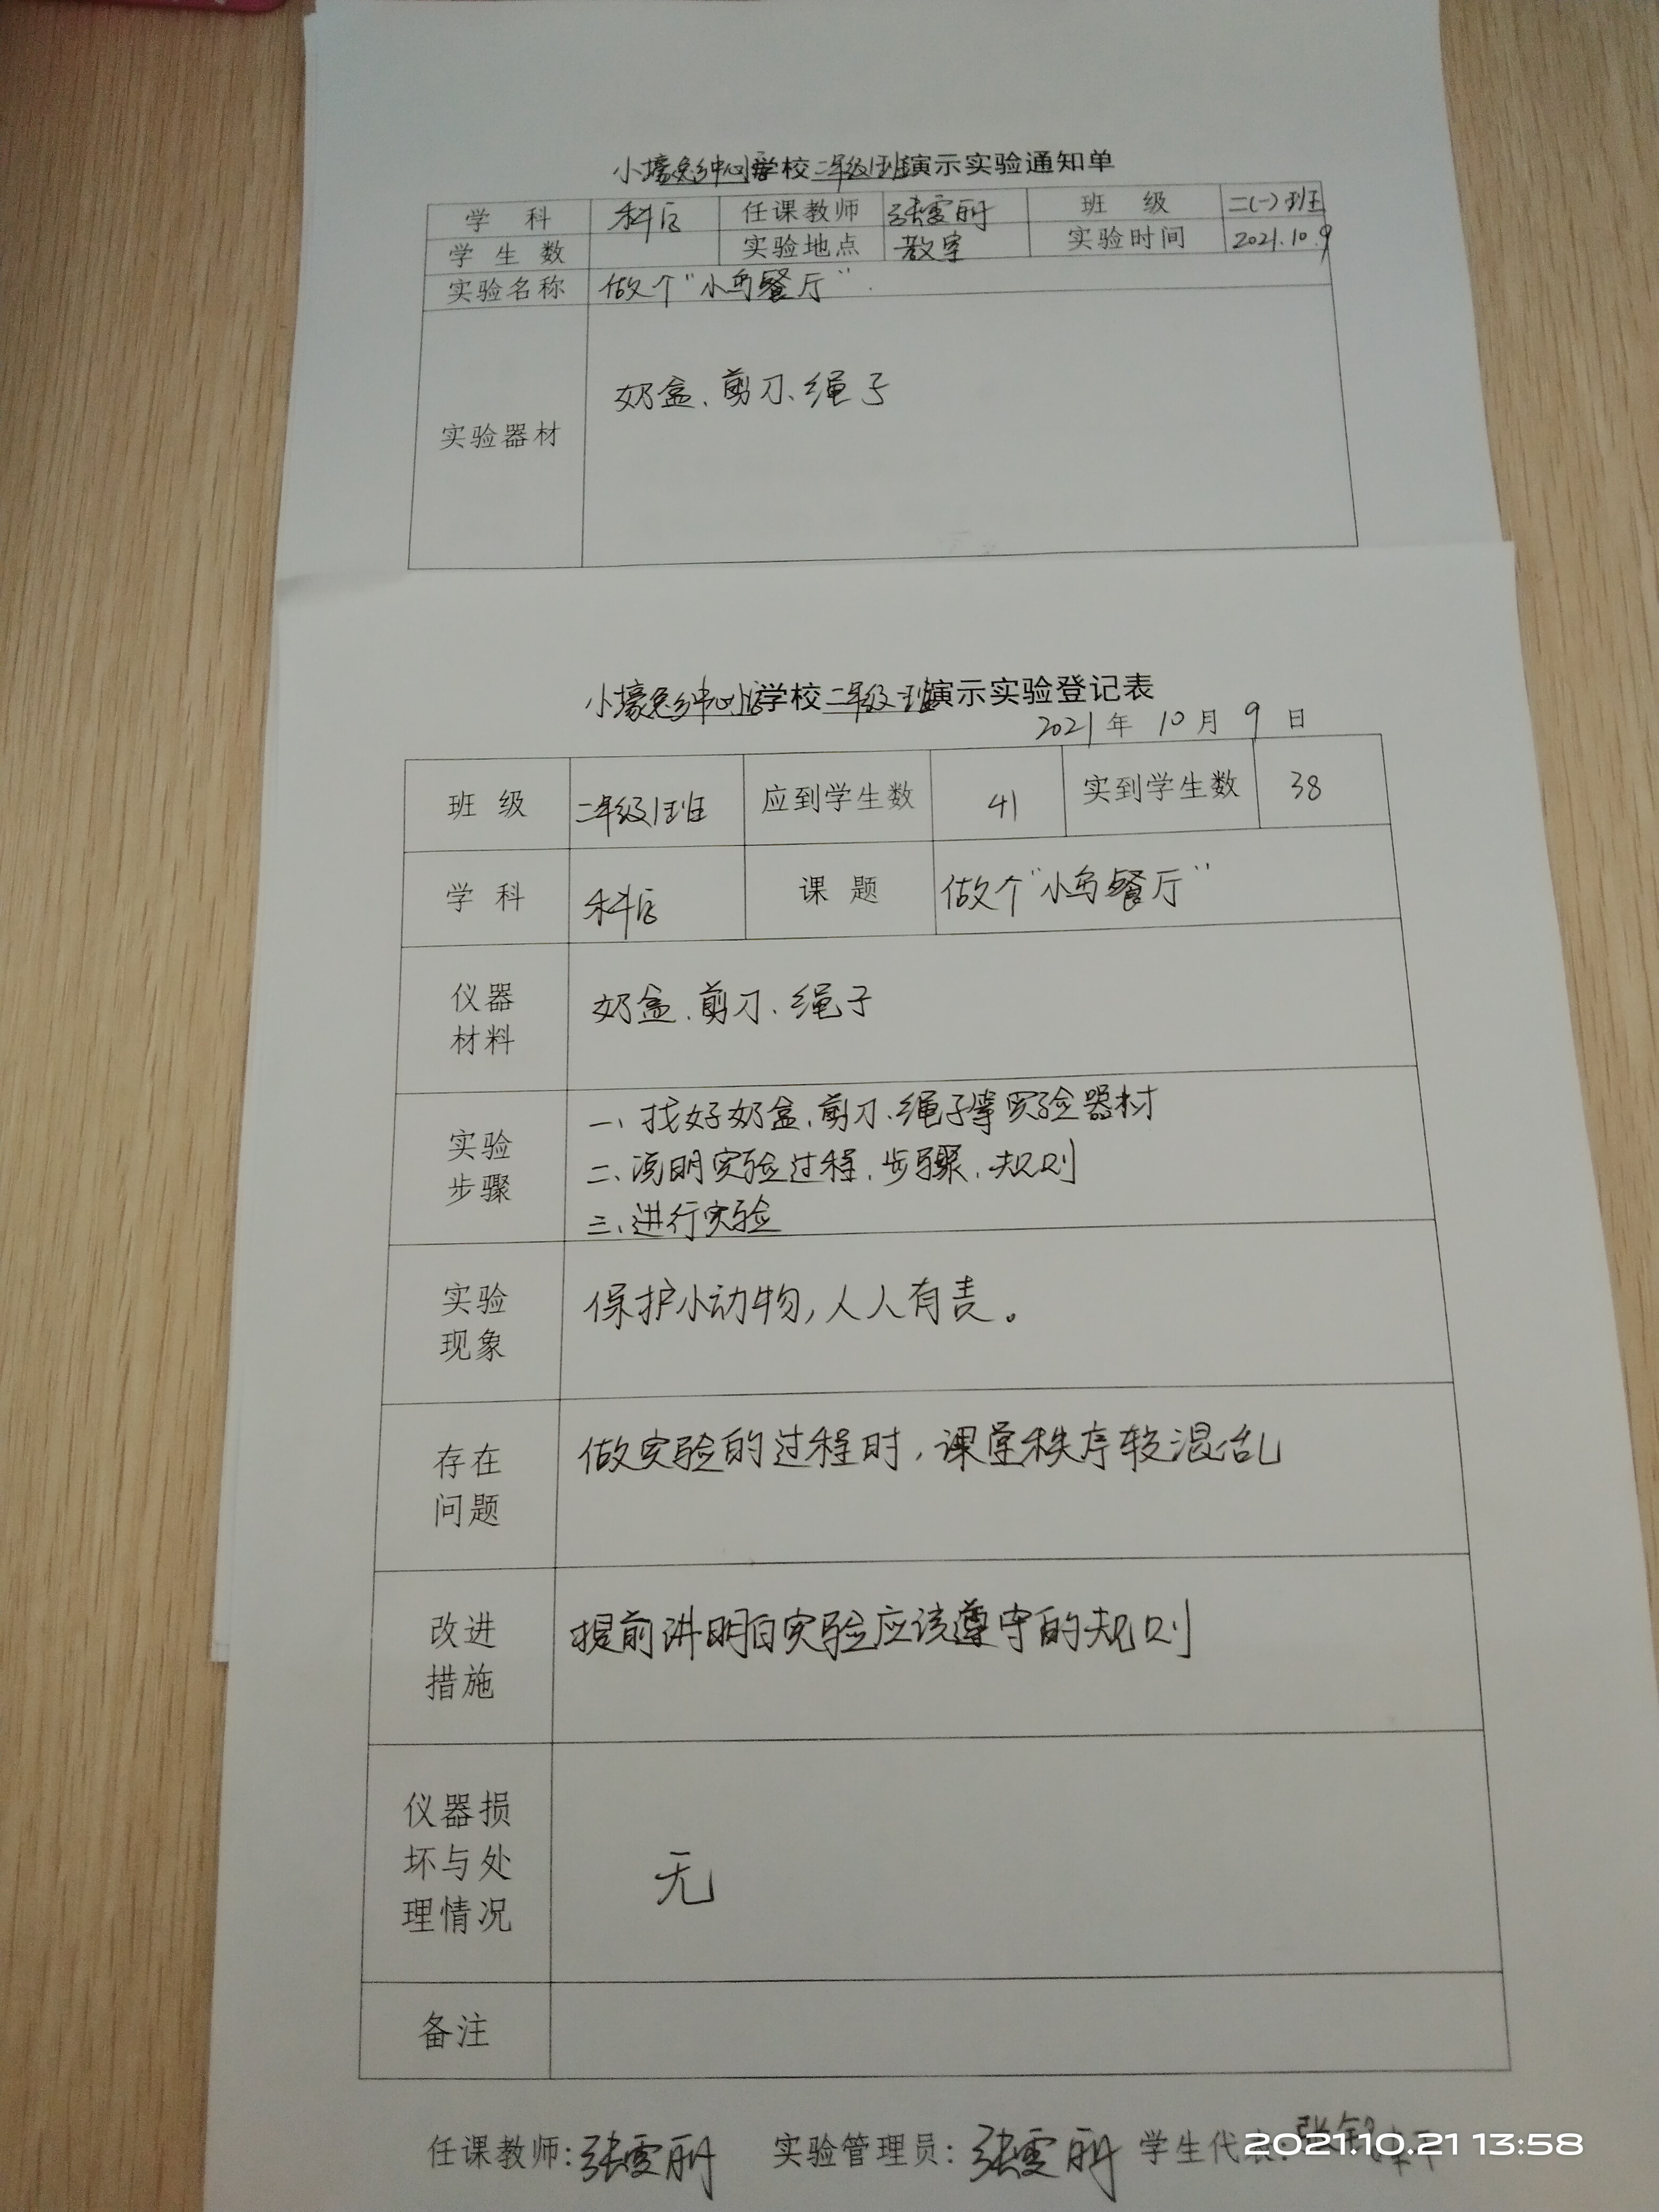 小壕兔乡中心小学校二年级1班演示实验通知单
学 科 科学 任课教师 张雯丽 班 级 二(一)班
学 生 数 实验地点 教室 实验时间 2021.10.9
实验名称 做个“小鸟餐厅”
实验器材 奶盒、剪刀、绳子
小壕兔乡中心小学校二年级一班演示实验登记表
2021年 10月 9日
班 级 二年级1班 应到学生数 41 实到学生数 38
学 科 科学 课 题 做个“小鸟餐厅”
仪器 奶盒、剪刀、绳子
材料
一、找好奶盒、剪刀、绳子等实验器材
实验 二、说明实验过程、步骤、规则
步骤 三、进行实验
实验 保护小动物,人人有责。
现象
存在 做实验的过程时,课堂秩序较混乱
问题
改进 提前讲明白实验应该遵守的规则
措施
仪器损
坏与处 无
理情况
备注
任课教师:张雯丽 实验管理员:张雯丽 学生代表:张
2021.10.21 13:58